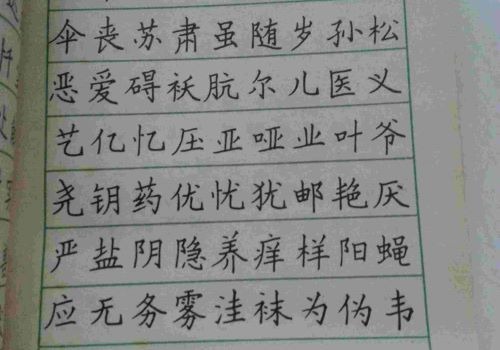 伞丧苏肃虽随岁孙松
恶爱碍袄肮尔儿医义
艺亿忆压亚哑业叶爷
尧钥药优忧犹邮艳厌
严盐阴隐养痒样阳蝇
应无务雾洼袜为伪韦